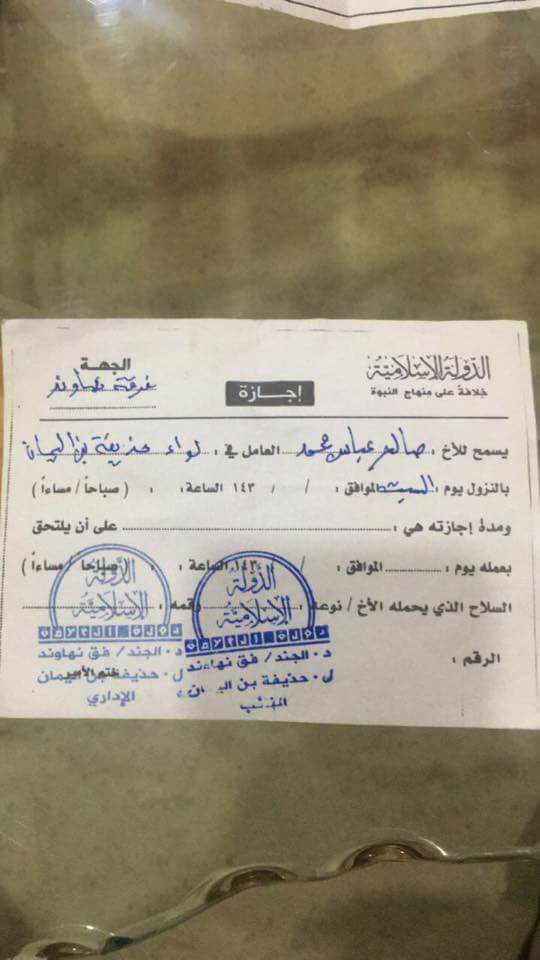 الدولة الإسلامية
خلافة على منهاج النبوة
إجازة
الجهة
فرقة نهاوند
يسمح للأخ : صالح عباس محمد العامل في : لواء حذيفة بن اليمان
بالنزول يوم : السبت الموافق : / / ١٤٣ الساعة : : ( صباحاً / مساءاً )
ومدة إجازته هي : على أن يلتحق
بعمله يوم : الموافق : / ١٤٣ الساعة : : ( صباحاً / مساءاً )
السلاح الذي يحمله الأخ / نوعه : رقمه :
الرقم :
ختم الأمير
الدولة الإسلامية
د. الجند / فق نهاوند
ل. حذيفة بن اليمان
الدولة الإسلامية
د. الجند / فق نهاوند
ل. حذيفة بن اليمان
الإداري